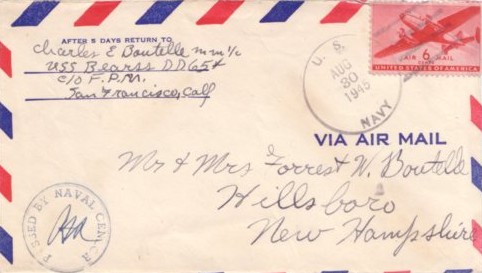 AFTER 5 DAYS RETURN TO
Charles E Boutelle mm 1/c
USS Bearss DD654
c/o F.P.M.
San Francisco, Calf
U. S. NAVY
AUG
30
1945
AIR 6 MAIL
CENTS
UNITED STATES OF AMERICA
VIA AIR MAIL
Mr & Mrs Forrest W. Boutelle
Hillsboro
New Hampshire
PASSED BY NAVAL CENSOR